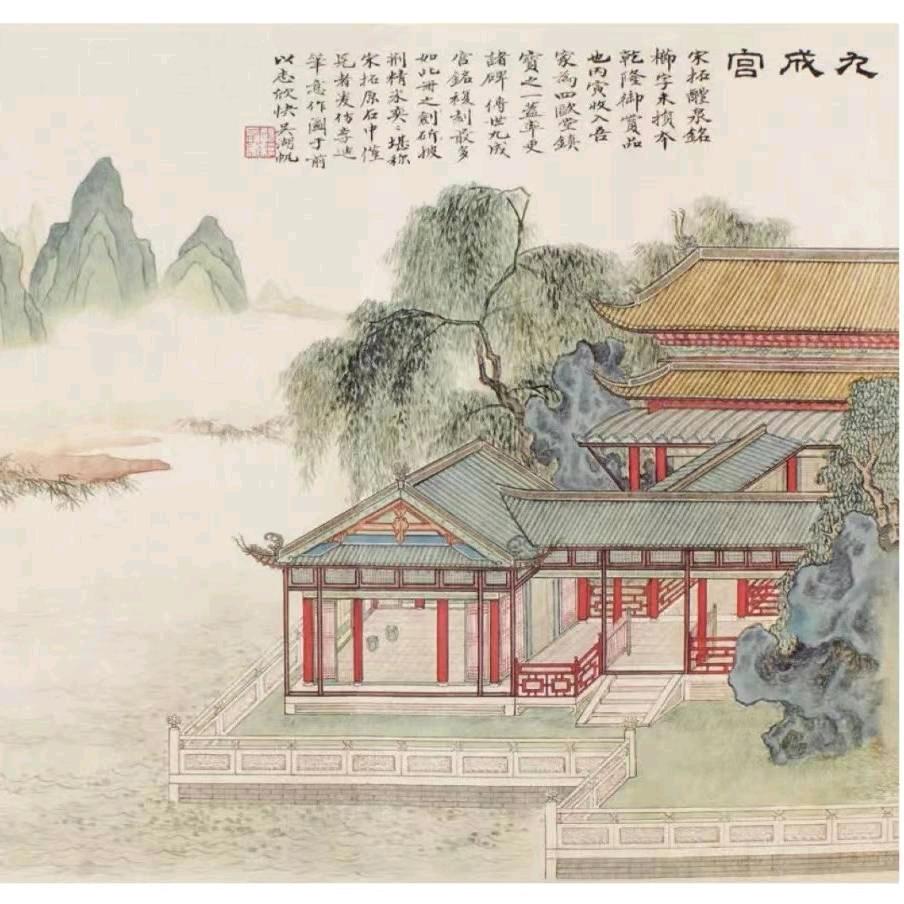 九成宮
宋拓醴泉銘
櫛字未損本
乾隆御賞品
也丙寅收入吾
家為四歐堂鎮
寶之一蓋率更
諸碑傳世九成
宮銘複刻最多
如此冊之劍斫披
荊精采奕々堪称
宋拓原石中僅
見者爰仿李迪
筆意作圖于前
以志欣快吳湖帆